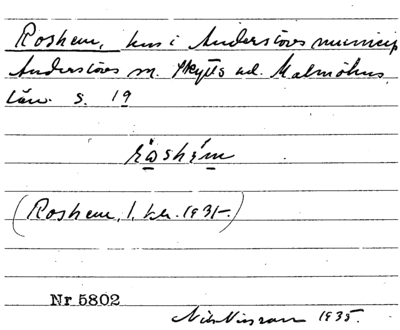 Roshem, hus i Anderslövs municip.
Anderslövs sn. Skytts hd. Malmöhus
län. s. 19
roshem
(Roshem, J. kr. 1931.)
Nr 5802
Nils Nilsson 1935.